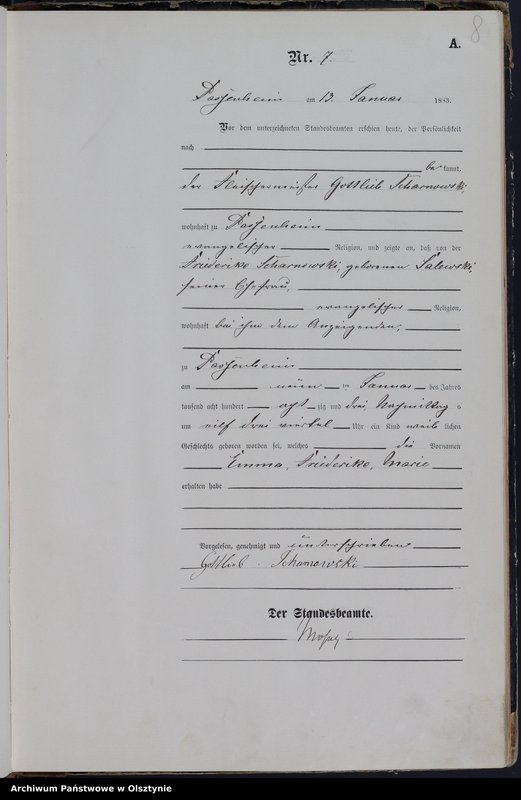 A.
8
Nr. 7.
Passenheim am 13. Januar 1883.
Vor dem unterzeichneten Standesbeamten erschien heute, der Persönlichkeit
nach
be kannt,
der Fleischermeister Gottlieb Scharnowski,
wohnhaft zu Passenheim
evangelischer Religion, und zeigte an, daß von der
Friederike Scharnowski, geborenen Salewski,
seiner Ehefrau,
evangelischer Religion,
wohnhaft bei ihm dem Anzeigenden,
zu Passenheim
am neun ten Januar des Jahres
tausend acht hundert acht zig und drei, Nachmittag s
um eilf drei viertel Uhr ein Kind weib lichen
Geschlechts geboren worden sei, welches die Vornamen
Emma, Friederike, Marie
erhalten habe
Vorgelesen, genehmigt und unterschrieben
Gottlieb Scharnowski
Der Standesbeamte.
Archiwum Państwowe w Olsztynie